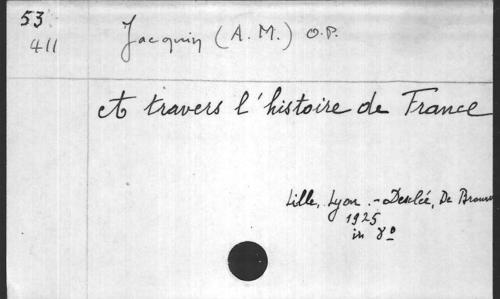 53
411
Jacquin (A.M.) O.P.
A travers l'histoire de France
Lille, Lyon. - Desclée, De Brouwer
1925
in 8º